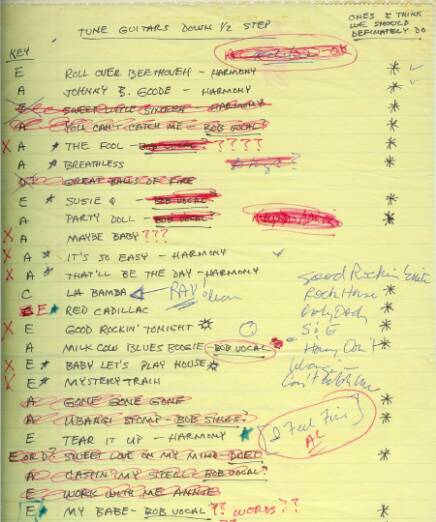 TUNE GUITARS DOWN 1/2 STEP
ONES I THINK
WE SHOULD
DEFINATELY DO
KEY
E ROLL OVER BEETHOVEN - HARMONY *
A JOHNNY B. GOODE - HARMONY *
SWEET LITTLE SIXTEEN - HARMONY
A YOU CAN'T CATCH ME - BOB VOCAL? *
X A * THE FOOL - BOB VOCAL? ???? *
A * BREATHLESS *
D GREAT BALLS OF FIRE
E * SUSIE Q - BOB VOCAL *
A PARTY DOLL - BOB VOCAL? *
X A MAYBE BABY ???
X A * IT'S SO EASY - HARMONY
X A * THAT'LL BE THE DAY - HARMONY
Good Rockin'
C LA BAMBA RAV *
Rock House
E * RED CADILLAC *
Baby
X E GOOD ROCKIN' TONIGHT * *
S. & E
A MILK COW BLUES BOOGIE - BOB VOCAL *
Honey Don't
X E * BABY LET'S PLAY HOUSE *
X E * MYSTERY TRAIN
A GONE GONE GONE
A UBANGI STOMP - BOB SINGS?
I Feel Fine
AL
E TEAR IT UP - HARMONY *
E OR D? SWEET LOVE ON MY MIND - DUET *
A CASTIN MY SPELL BOB VOCAL?
E WORK WITH ME ANNIE
E D? MY BABE - BOB VOCAL ?? WORDS?? *